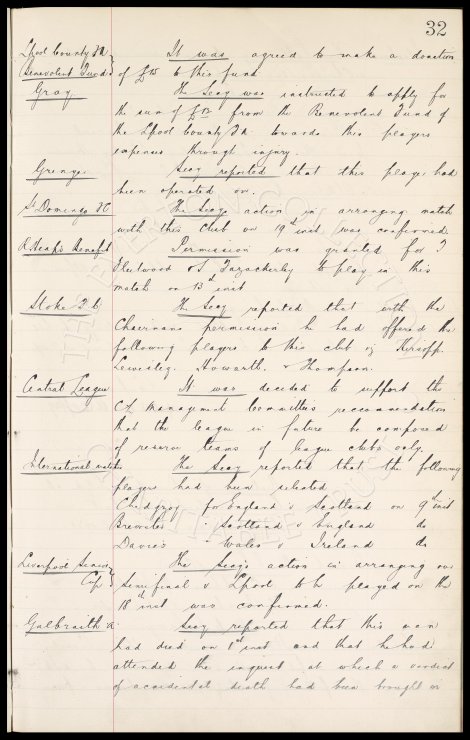 32
Lpool County FA Benevolent Fund } It was agreed to make a donation
of £15 to this fund
Gray. The Secy was instructed to apply for
the sum of from the Benevolent Fund of
the Lpool County FA towards this players
expenses through injury.
Grenyer Secy reported that this player had
been operated on.
St Domingo FC The Secys action in arranging match
with this Club on 19th inst was confirmed.
Benefit Permission was granted for T
Fleetwood & J Fazackerley to play in this
match on 13th inst
Stoke F.C. The Secy reported that with the
Chairmans permission he had offered the
following players to this club viz Kirsopp.
Lievesley. Howarth. & Thompson.
Central League It was decided to support the
C.L Management Committee's recommendation
that the league in future be composed
of reserve teams of league clubs only.
International matches The Secy reported that the following
players had been selected
Chedgzoy for England v Scotland on 9th inst
Brewster " Scotland v England do
Davies " Wales v Ireland do
Liverpool Senior Cup } The Secy's action in arranging our
Semi final v Lpool to be played on the
18th inst was confirmed.
Galbraith Secy reported that this man
had died on 1st inst and that he had
attended the inquest at which a verdict
of accidental death had been brought in